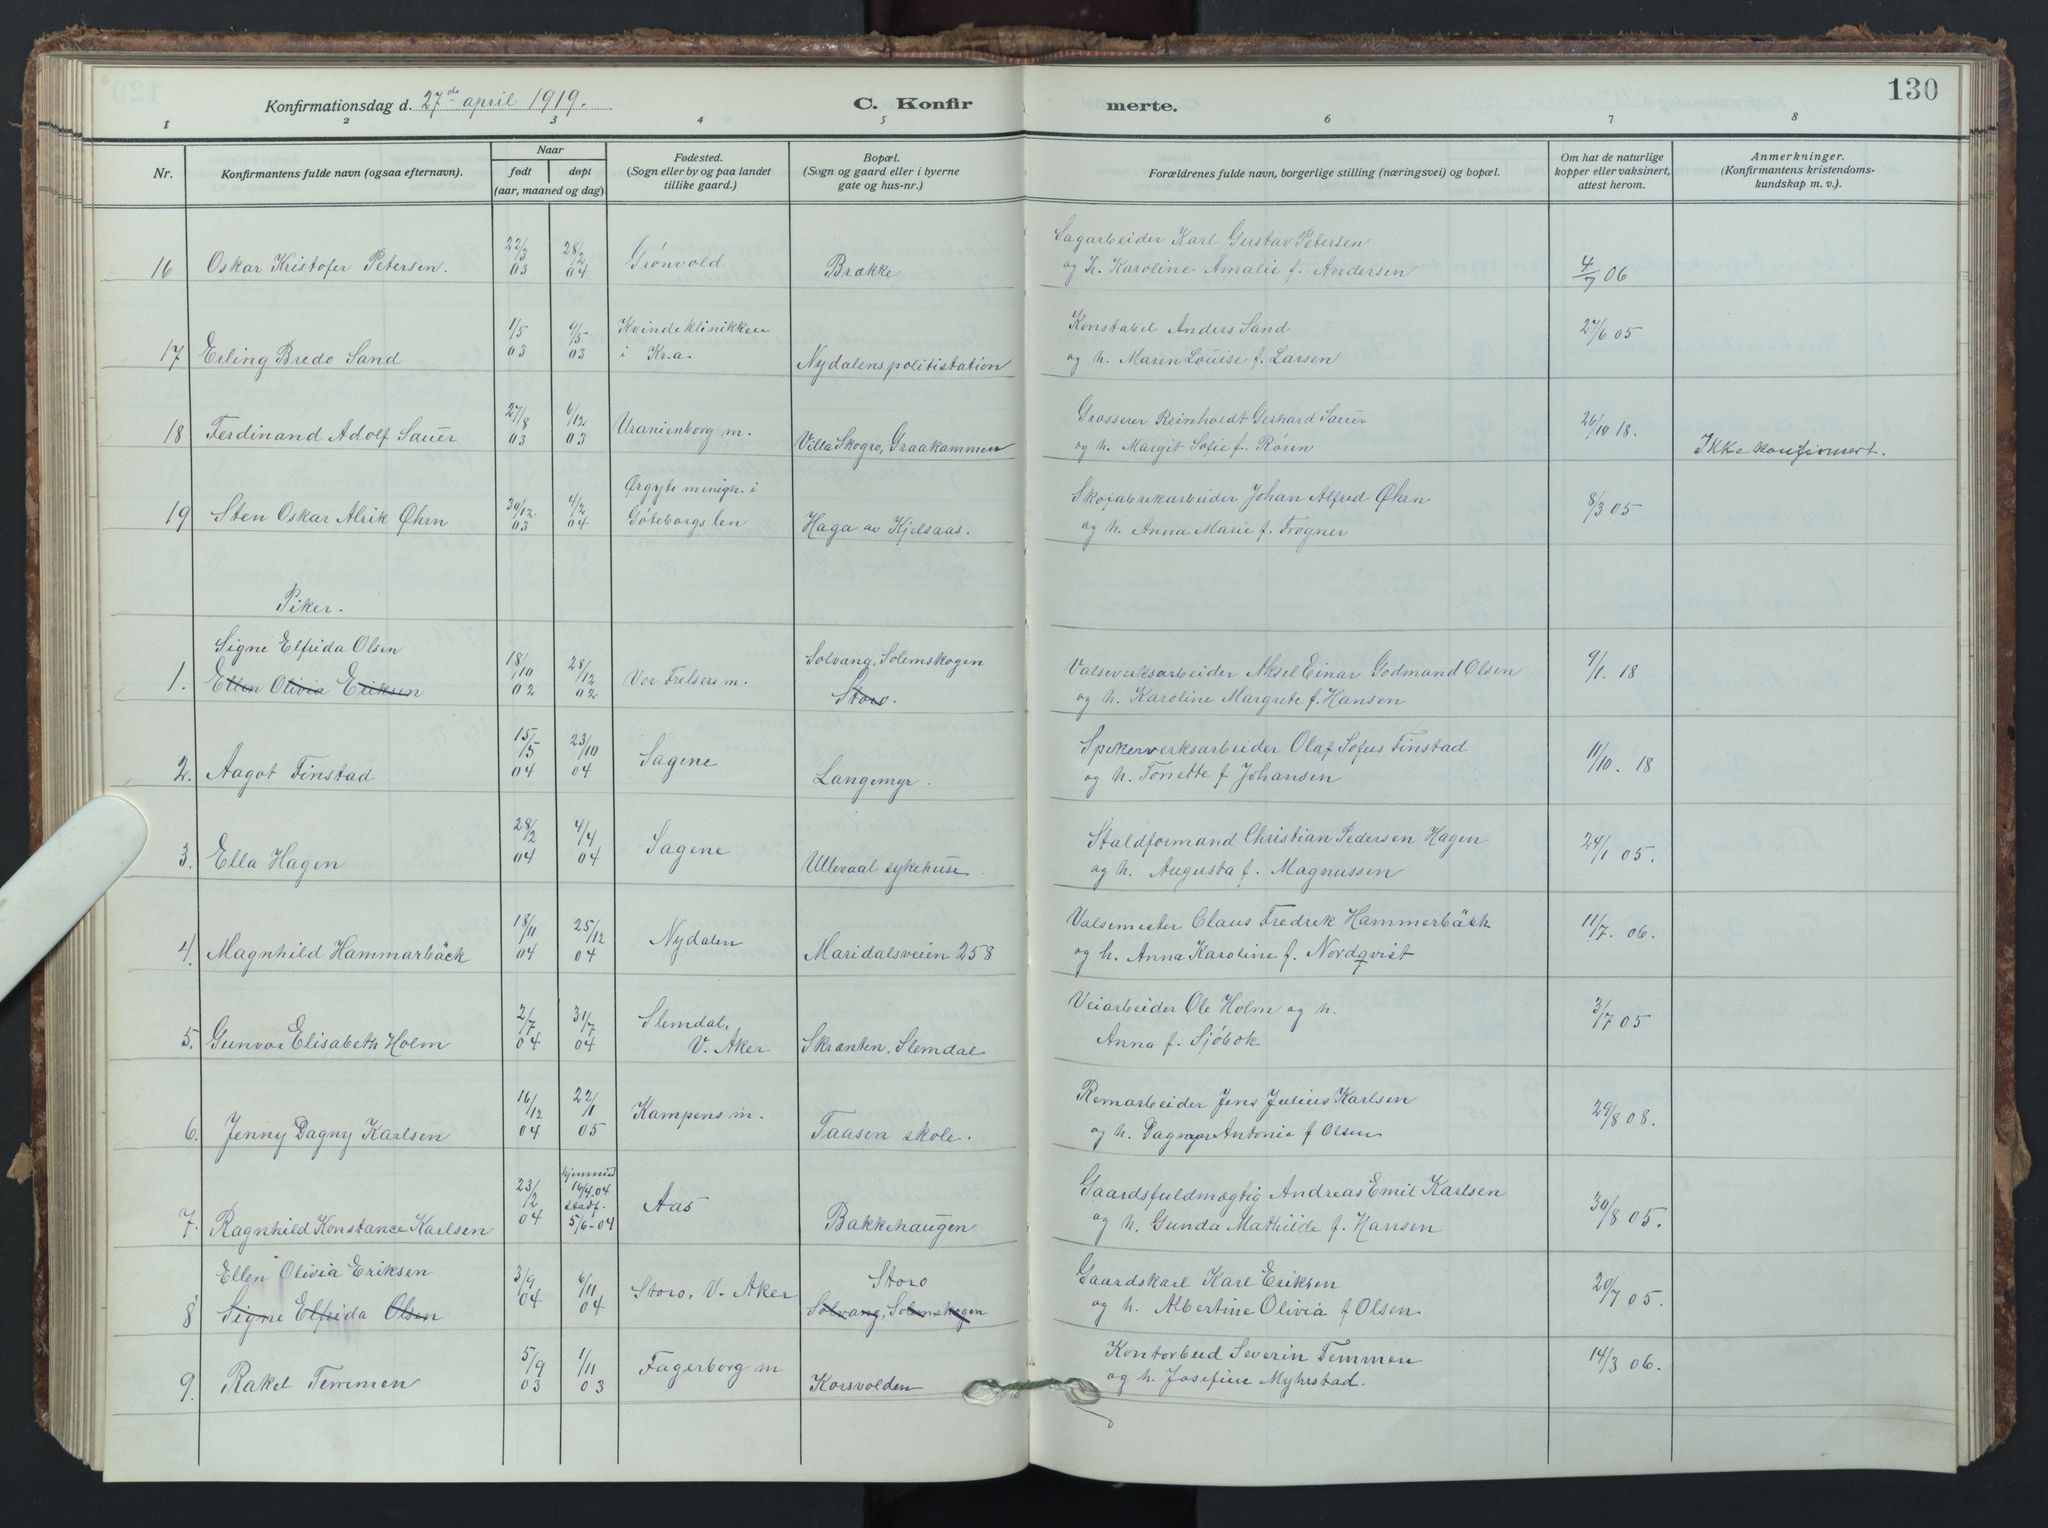 130
Konfirmationsdag d. 27de april 1919.
C. Konfir merte.
1 2 3 4 5 6 7 8
Nr.
Konfirmantens fulde navn (ogsaa efternavn).
Naar
født døpt
(aar, maaned og dag)
Fødested.
(Sogn eller by og paa landet
tillike gaard.)
Bopæl.
(Sogn og gaard eller i byerne
gate og hus-nr.)
Forældrenes fulde navn, borgerlige stilling (næringsvei) og bopæl.
Om hat de naturlige
kopper eller vaksinert,
attest herom.
Anmerkninger.
(Konfirmantens kristendoms-
kundskap m. v.).
22/3 28/2 Sagarbeider Karl Gustav Petersen
16 Oskar Kristofer Petersen. 03 04 Grønvold Brække og h. Karoline Amalie f. Andersen 4/7 06
1/5 9/5 Kvindeklinikken Konstabel Anders Sand 27/6 05
17 Erling Bredo Sand 03 03 i Kr.a. Nydalens politistation og h. Maren Louise f. Larsen
27/8 6/12 Grosserer Reinholdt Gerhard Sauer 26/10 18.
18 Ferdinand Adolf Sauer 03 03 Uranienborg m. Villa Skogro, Graakammen og h. Margit Sofie f. Røren Ikke konfirmert.
30/12 4/2 Ørgyte menigh. i Skofabrikarbeider Johan Alfred Øhrn 8/3 05
19 Sten Oskar Alrik Øhrn 03 04 Göteborgs len Haga av Kjelsaas. og h. Anna Marie f. Frogner
Piker.
Signe Elfrida Olsen 18/10 28/12 Solvang, Solemskogen Valseverksarbeider Aksel Einar Godmand Olsen 9/1. 18
1. Ellen Olivia Eriksen 02 02 Vor Frelsers m. Storo. og h. Karoline Margrete f. Hansen
15/5 23/10 Spikerverksarbeider Olaf Sofus Finstad
2. Aagot Finstad 04 04 Sagene Langemyr. og h. Tonette f Johansen 11/10. 18
28/2 4/4 Staldformand Christian Pedersen Hagen
3. Ella Hagen 04 04 Sagene Ullevaal sykehuse. og h. Augusta f. Magnussen 24/1 05.
18/11 25/12 Valsemester Claus Fredrik Hammerbäck 11/7. 06.
4. Magnhild Hammarbäck 04 04 Nydalen Maridalsveien 258 og h. Anna Karoline f. Nordqvist
2/7 31/7 Slemdal, Veiarbeider Ole Holm og h. 3/7 05
5. Gunvor Elisabeth Holm 04 04 V. Aker Skrænten, Slemdal Anna f. Sjöbok
16/12 22/1 Remarbeider Jens Julius Karlsen
6. Jenny Dagny Karlsen 04 05 Kampens m. Taasen skole. og h. Dagmar Antonie f Olsen 29/8 08.
23/2 hjemmed. 16/4.04 stadf. Gaardsfuldmægtig Andreas Emil Karlsen
7. Ragnhild Konstance Karlsen 04 5/6-04 Aas Bakkehaugen og h. Gunda Mathilde f. Hansen 30/8 05.
Ellen Olivia Eriksen 3/9 6/11 Storo Gaardskarl Karl Eriksen
8 Signe Elfrida Olsen 04 04 Storo, V. Aker Solvang, Solemskogen og h. Albertine Olivia f Olsen 20/7 05.
5/9 1/11 Kontorbud Severin Temmen
9. Rakel Temmen 03 03 Fagerborg m Korsvolden og h. Josefine Myhrstad. 14/3 06.